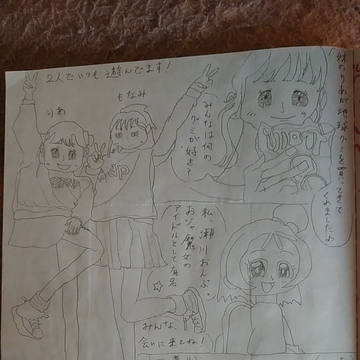 2人でいつも遊んでます!
もなみ
りあ
妹のりあが地球グミを買ってきて
くれましたわ
みんなは何の
グミが好き?
私、瀬川おんぷ。
おジャ魔女の
アイドルとして有名
☆
みんな、
会いに来てね!